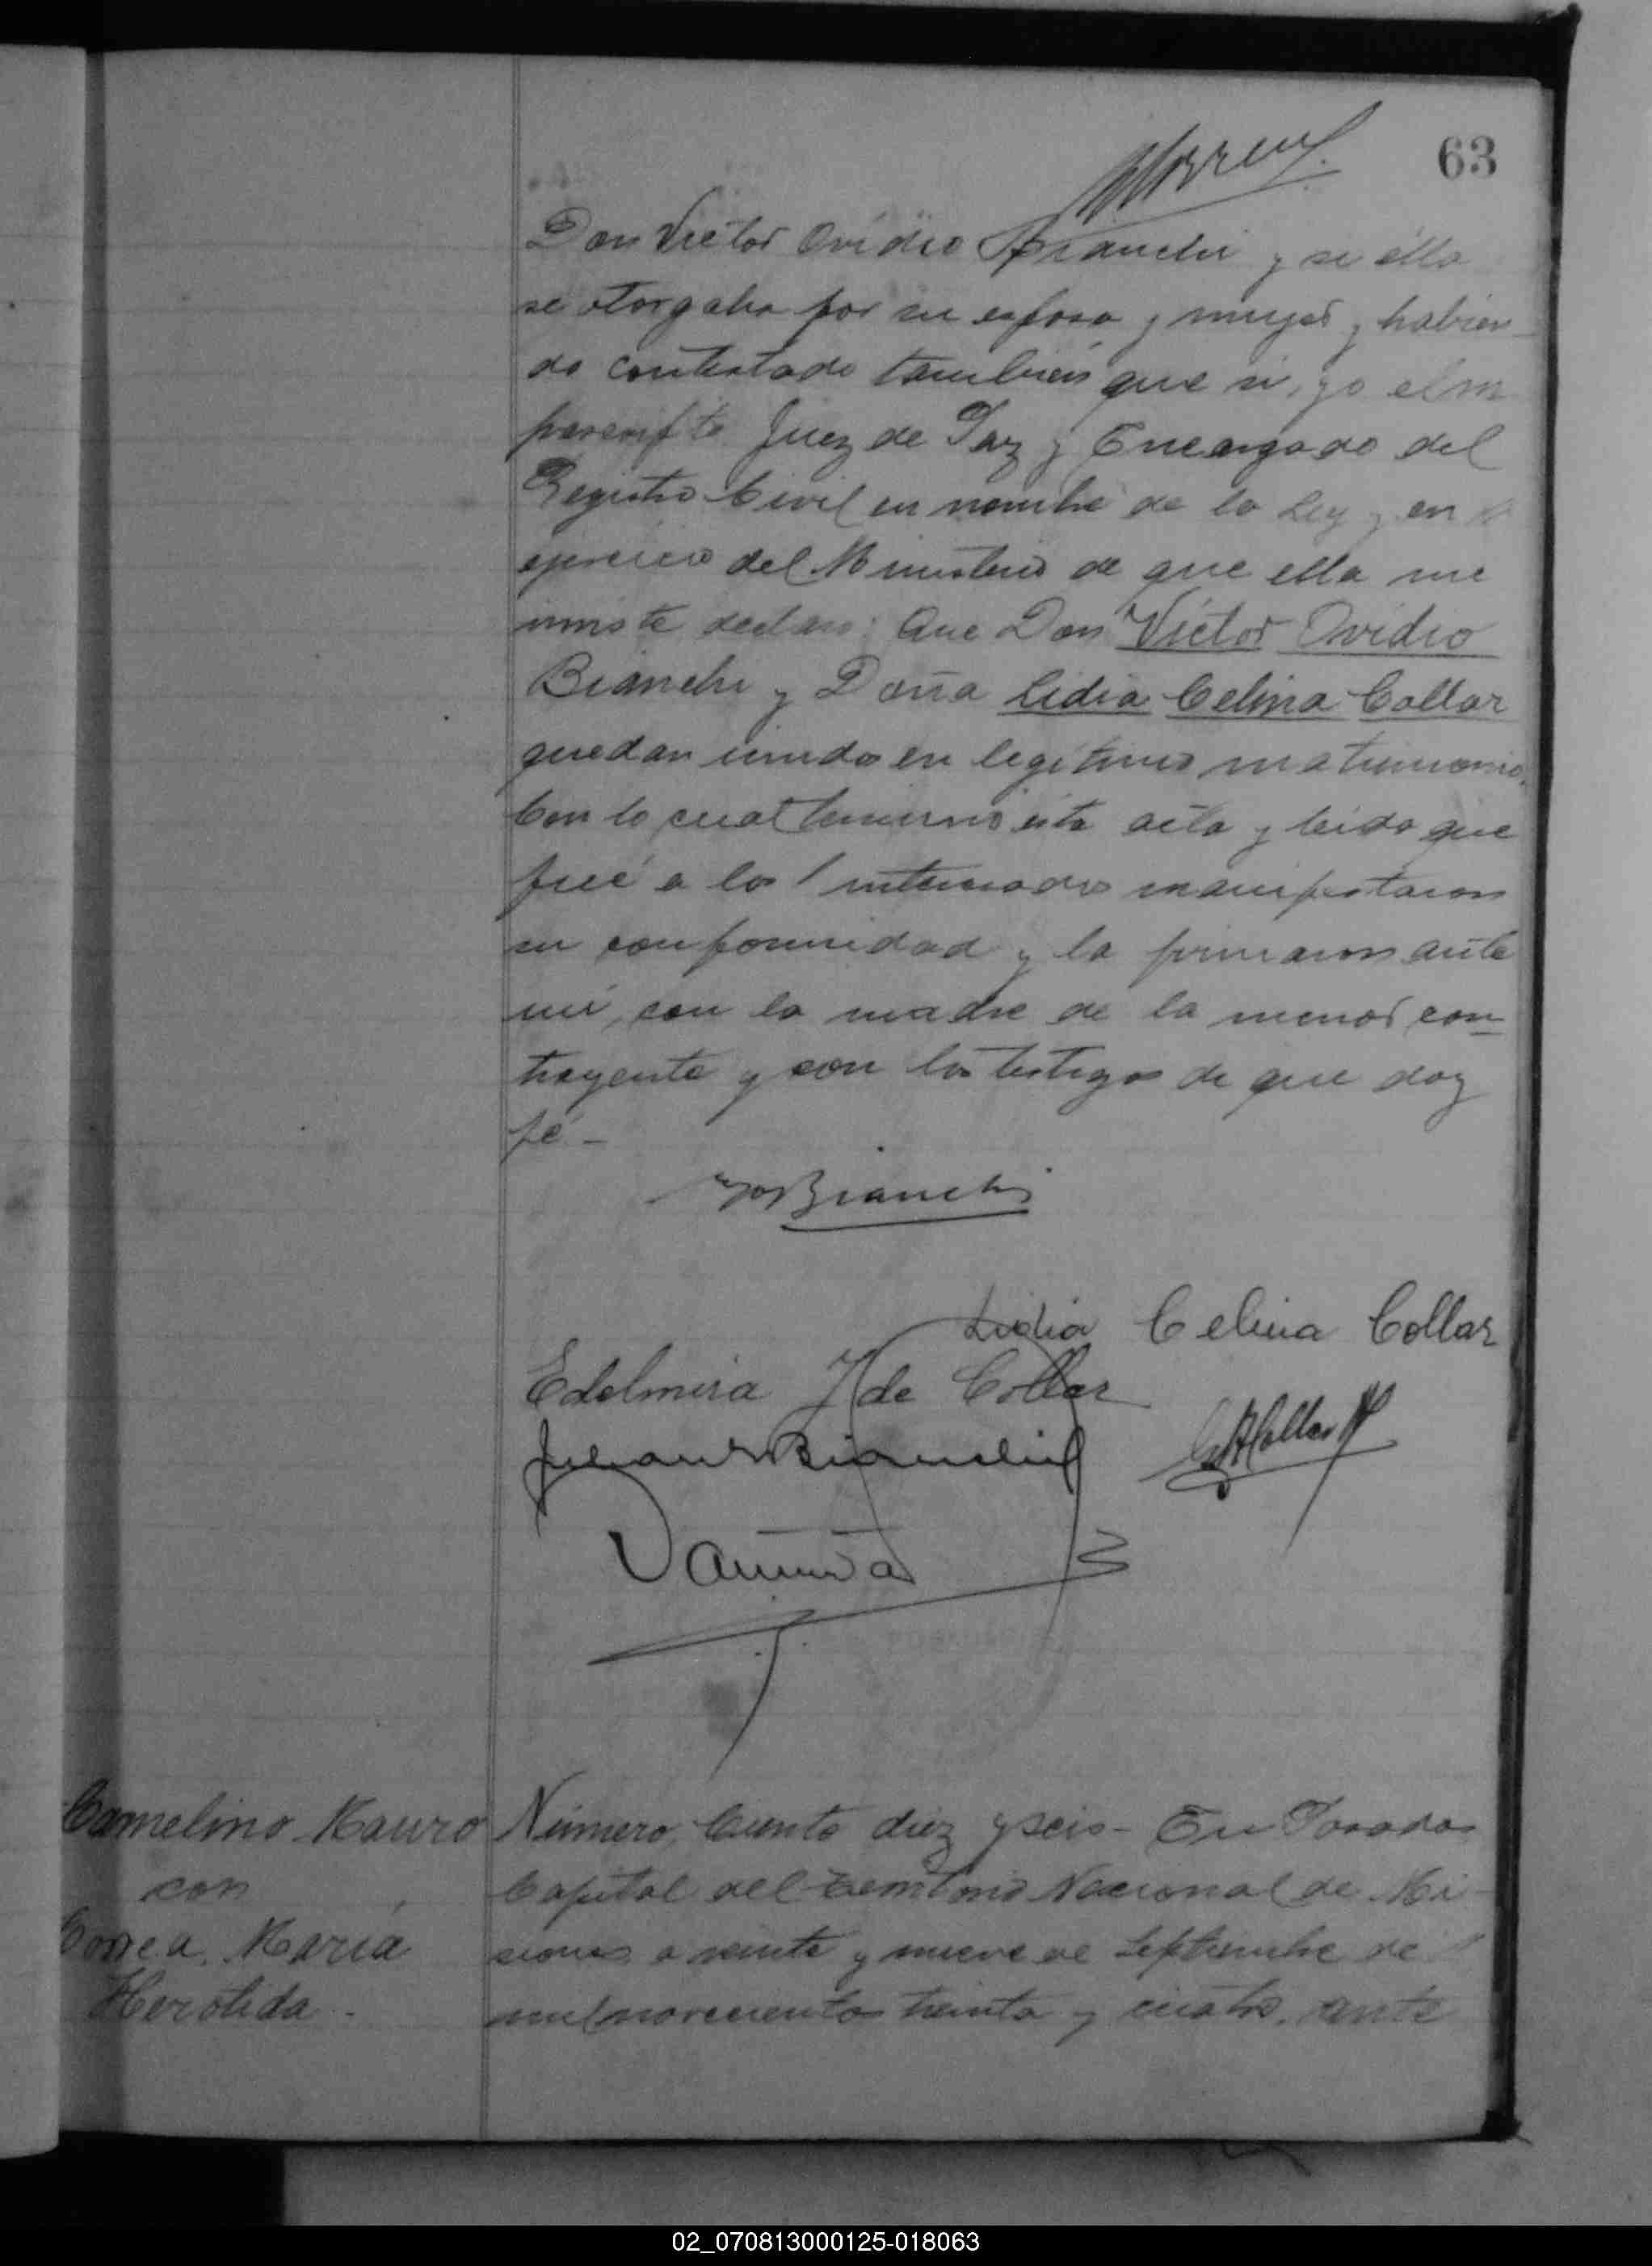 63
Don Victor Ovidio Bianchi y si ella
se otorgaba por su esposa y mujer y habien-
do contestado también que si, yo el in
Juez de Paz y Encargado del
Registro Civil en nombre de la Ley y en
ejercicio del Ministerio de que ella me
inviste declaro: Que Don Victor Ovidio
Bianchi y Doña Lidia Celina Collar
quedan unidos en legitimo matrimonio.
Con lo cual termino esta acta y leida que
fué a los interesados manifestaron
su conformidad y la firmaron ante
mi, con la madre de la menor con-
trayente y con los testigos de que doy
fé -
Bianchi
Lidia Celina Collar
Edelmira de Collar
Bianchi
Collar
Camelino Mauro
con
Correa María
Herotida -
Número, Ciento diez y seis - En Posadas
Capital del Territorio Nacional de Mi-
siones a veinte y nueve de Septiembre de
mil novecientos treinta y cuatro, ante
02_070813000125-018063